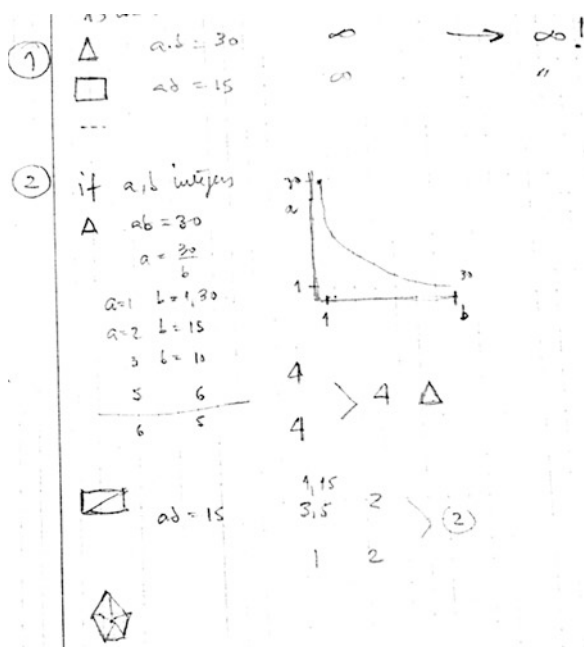 1 △ a.b = 30 ∞ → ∞!
□ ab = 15 ∞ "
---
2 if a, b integers
△ ab = 30
a = 30/b
a=1 b=1,30
a=2 b=15
3 b=10
5 6
6 5
30
a
1
1
30
b
4
4
> 4 △
ab = 15
1,15
3,5 2
1 2
> 2